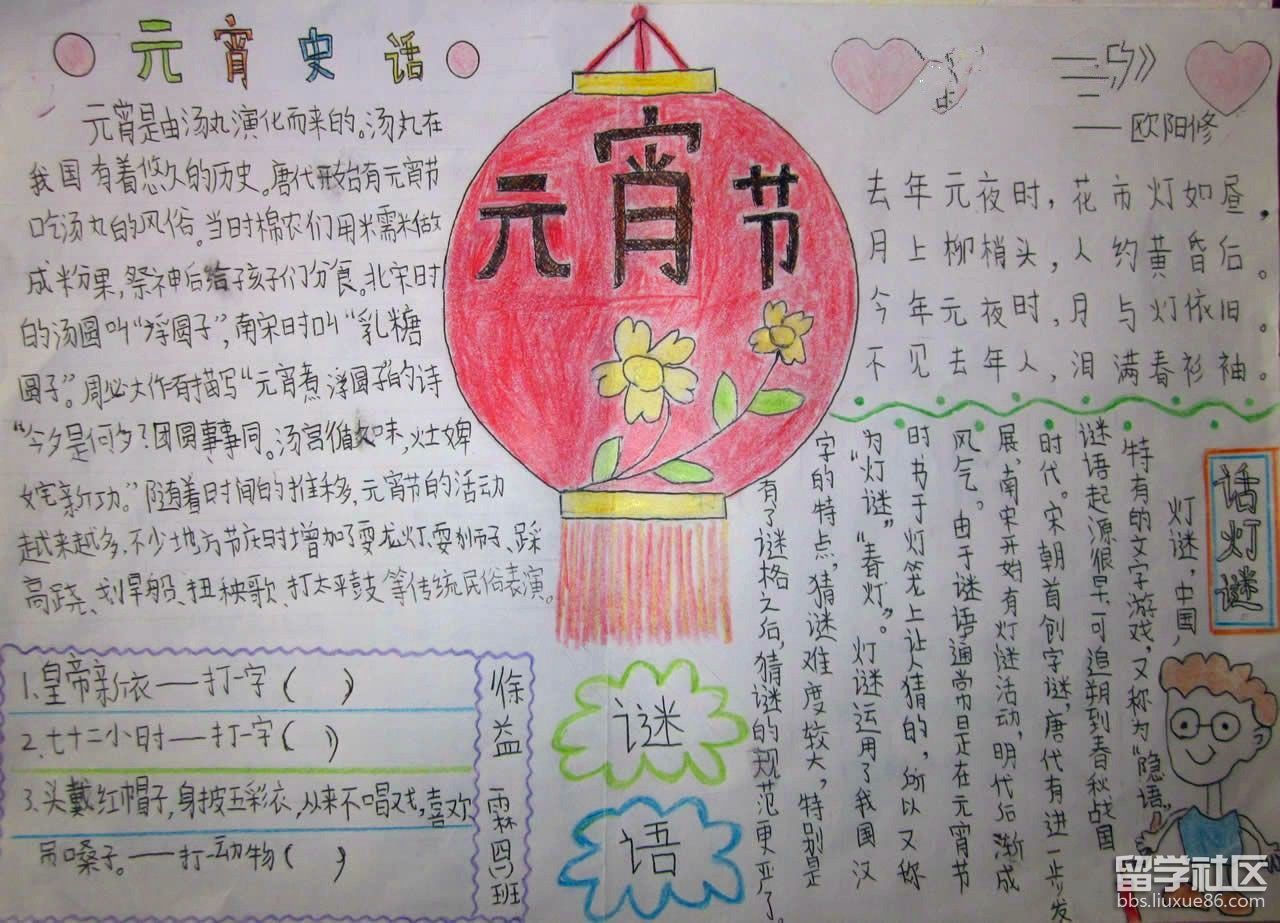 元宵史话
元宵是由汤丸演化而来的。汤丸在
我国有着悠久的历史。唐代开始有元宵节
吃汤丸的风俗。当时棉农们用米需米做
成米分果,祭神后给孩子们分食。北宋时
的汤圆叫“浮圆子”,南宋时叫“乳糖
圆子”。周必大作有描写“元宵煮浮圆子”的诗
“今夕是何夕?团圆事事同。汤官循味,灶婢
诧新功。”随着时间的推移,元宵节的活动
越来越多,不少地方节庆时增加了耍龙灯、耍狮子、踩
高跷、划旱船、扭秧歌、打太平鼓等传统民俗表演。
元宵节
——欧阳修
去年元夜时,花市灯如昼,
月上柳梢头,人约黄昏后。
今年元夜时,月与灯依旧。
不见去年人,泪满春衫袖。
话灯谜
灯谜,中国,
特有的文字游戏,又称为“隐语”
谜语起源很早,可追朔到春秋战国
时代。宋朝首创字谜,唐代有进一步发
展,南宋开始有灯谜活动,明代后渐成
风气。由于谜语通常是在元宵节
时书于灯笼上让人猜的,所以又称
为“灯谜”“春灯”。灯谜运用了我国汉
字的特点,猜谜难度较大,特别是
有了谜格之后,猜谜的规范更严了。
1.皇帝新衣——打一字( )
2.七十二小时——打一字( )
3.头戴红帽子,身披五彩衣,从来不唱戏,喜欢
吊嗓子。——打一动物( )
徐益霖四(4)班
谜
语
留学社区
bbs.liuxue86.com